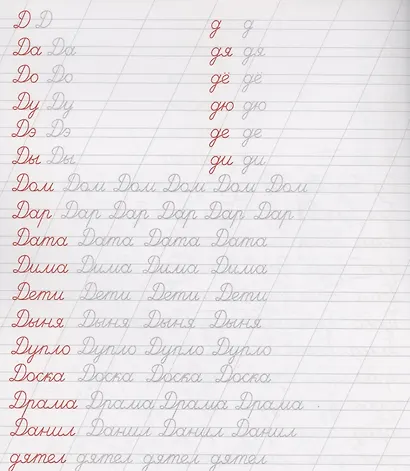 Д Д д д
Да Да дя дя
До До дё дё
Ду Ду дю дю
Дэ Дэ де де
Ды Ды ди ди
Дом Дом Дом Дом Дом Дом
Дар Дар Дар Дар Дар Дар
Дата Дата Дата Дата
Дима Дима Дима Дима
Дети Дети Дети Дети
Дыня Дыня Дыня Дыня
Дупло Дупло Дупло Дупло
Доска Доска Доска Доска
Драма Драма Драма Драма
Данил Данил Данил Данил
дятел дятел дятел дятел